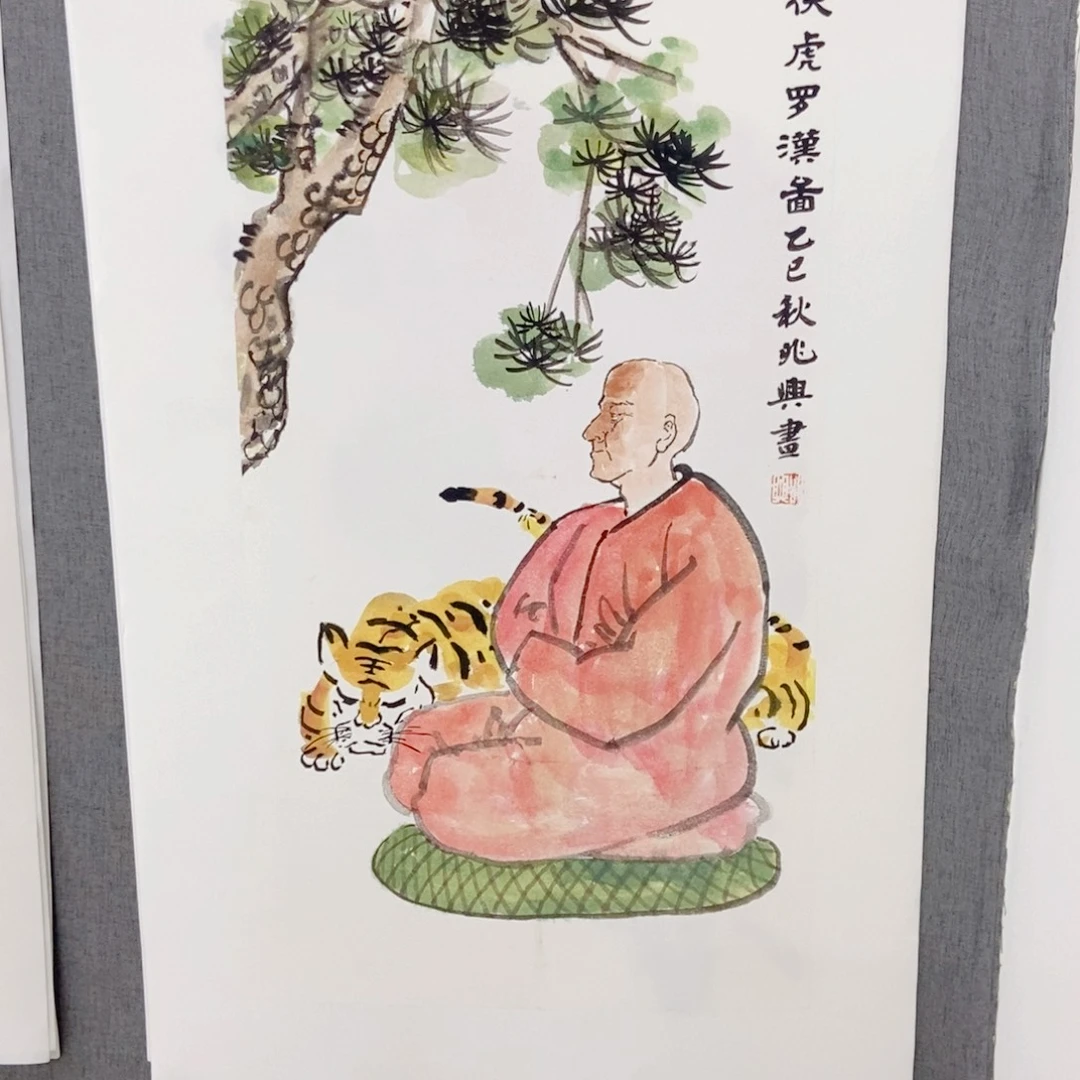 伏虎罗漢畵乙巳秋兆興畫